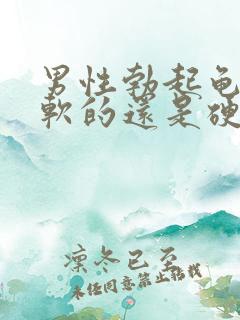 男性勃起龟
軟的還是硬
凛冬已至
未经同意禁止搬运